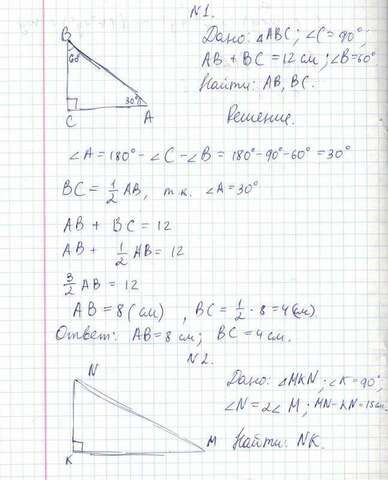 N1.
Дано: △ABC; ∠C = 90°;
AB + BC = 12 см; ∠B = 60°
Найти: AB, BC.
B
60°
30°
C
A
Решение.
∠A = 180° - ∠C - ∠B = 180° - 90° - 60° = 30°
BC = 1/2 AB, т.к. ∠A = 30°
AB + BC = 12
AB + 1/2 AB = 12
3/2 AB = 12
AB = 8 (см), BC = 1/2 · 8 = 4 (см)
Ответ: AB = 8 см; BC = 4 см.
N2.
Дано: △MKN; ∠K = 90°,
∠N = 2∠M; MN - KN = 15 см.
Найти: NK.
N
K
M